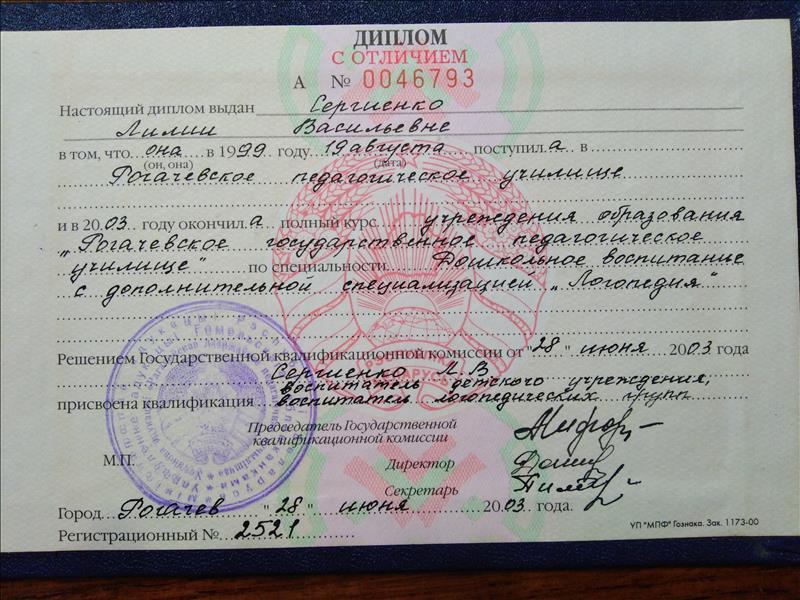 ДИПЛОМ
С ОТЛИЧИЕМ
А № 0046793
Настоящий диплом выдан Сергиенко
Лилии Васильевне
в том, что она в 1999 году 19 августа поступила в
(он, она) (дата)
Рогачевское педагогическое училище
и в 2003 году окончила полный курс учреждения образования
„Рогачевское государственное педагогическое
училище" по специальности Дошкольное воспитание
с дополнительной специализацией „Логопедия"
Решением Государственной квалификационной комиссии от "28" июня 2003 года
Сергиенко Л.В
воспитатель детского учреждения,
присвоена квалификация воспитатель логопедических групп
Председатель Государственной
квалификационной комиссии
М.П. Директор
Секретарь
Город Рогачев "28" июня 2003 года.
Регистрационный № 2521
УП "МПФ" Гознака. Зак. 1173-00